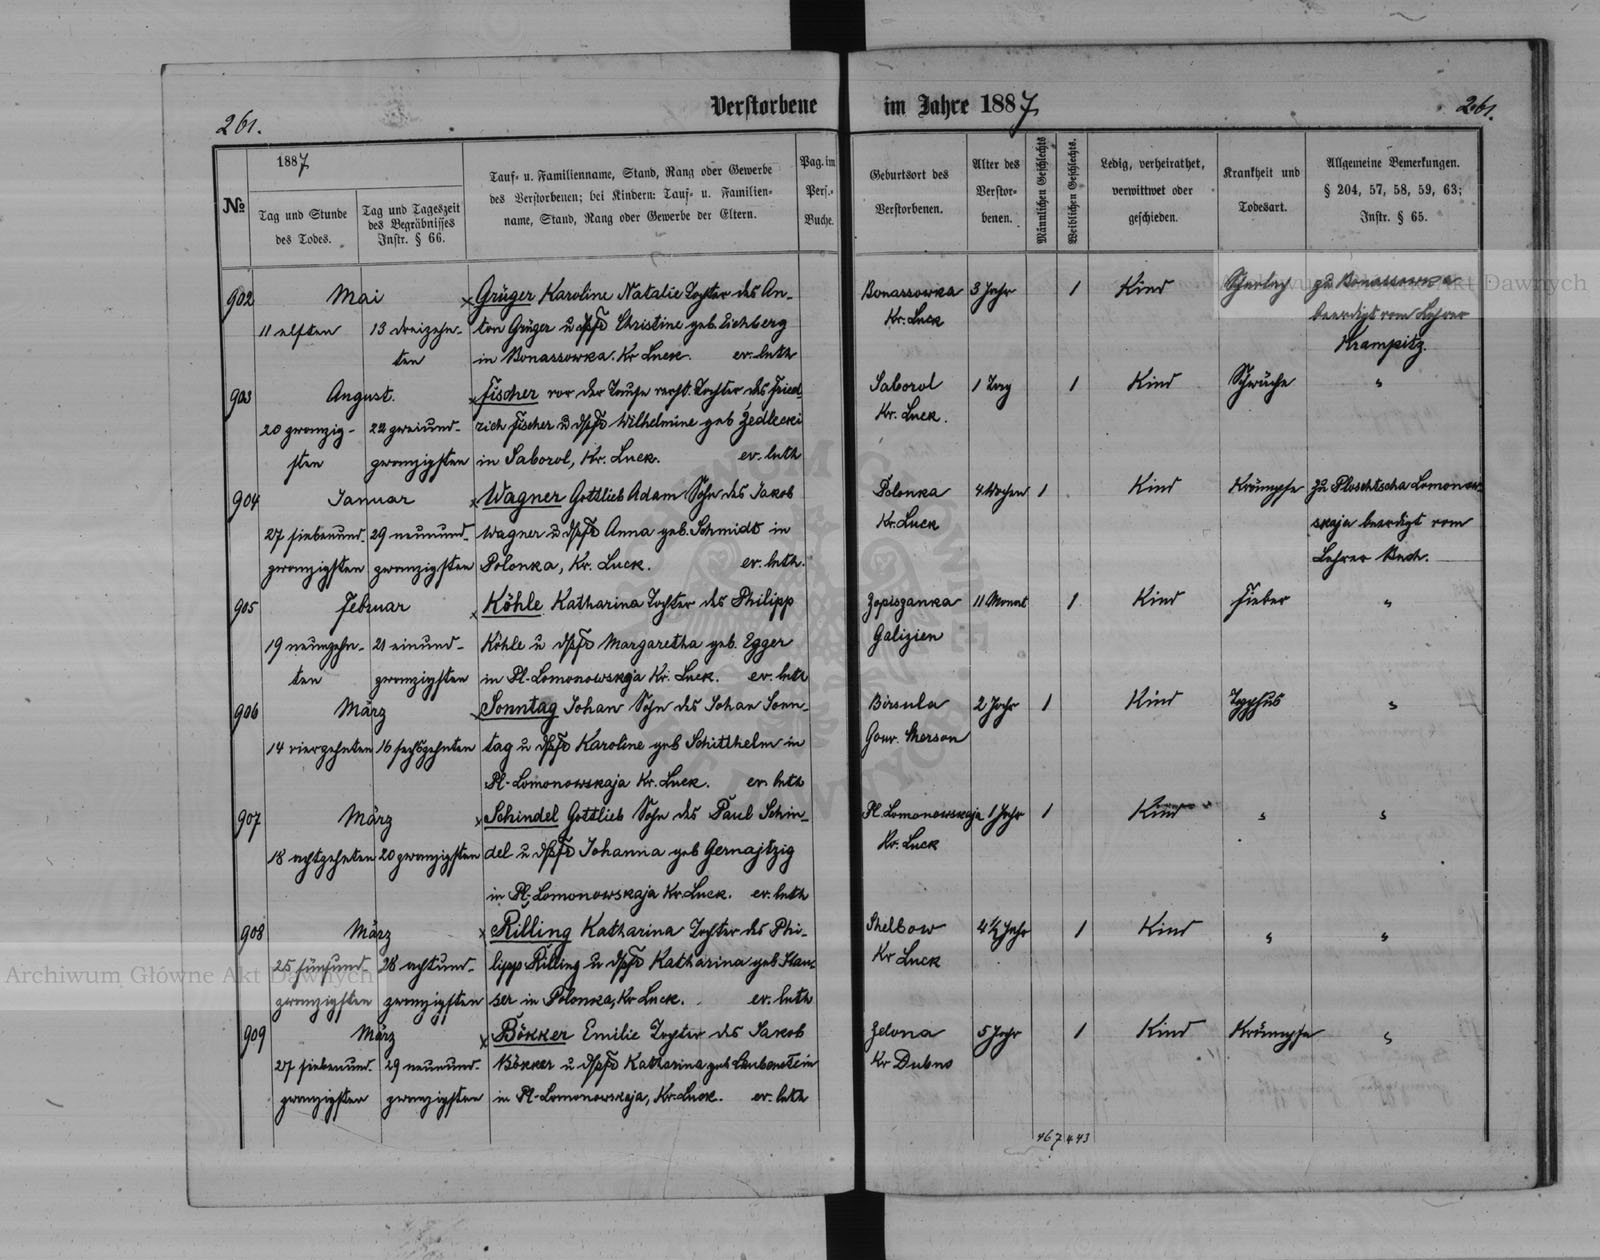 261.
Verstorbene im Jahre 1887
261.
№
1887
Tag und Stunde
des Todes.
Tag und Tageszeit
des Begräbnisses
Instr. § 66.
Tauf- u. Familienname, Stand, Rang oder Gewerbe
des Verstorbenen; bei Kindern: Tauf- u. Familien-
name, Stand, Rang oder Gewerbe der Eltern.
Pag. im
Pers.-
Buche.
Geburtsort des
Verstorbenen.
Alter des
Verstor-
benen.
Männlichen Geschlechts
Weiblichen Geschlechts.
Ledig, verheirathet,
verwittwet oder
geschieden.
Krankheit und
Todesart.
Allgemeine Bemerkungen.
§ 204, 57, 58, 59, 63;
Instr. § 65.
902 Mai × Grüger Karoline Natalie Tochter des An- Bonassowka 3 Jahr 1 Kind Scharlach zu Bonassowka
11 elften 13 dreizehn- ton Grüger u. Christine geb. Eichberg Kr. Luck beerdigt vom Lehrer
ten in Bonassowka. Kr Luck. ev. luth Krampitz.
903 August. × Fischer vor der Taufe verst. Tochter des Fried Saborol 1 Tag 1 Kind Schwäche "
20 zwanzig- 22 zweiund- rich Fischer u Wilhelmine geb Zedlecki Kr. Luck.
sten zwanzigsten in Saborol, Kr. Luck. ev. luth
904 Januar × Wagner Gottlieb Adam Sohn des Jakob Polonka 4 Wochen 1 Kind Krämpfe zu Ploschtscha Lomonow-
27 siebenund- 29 neunund- Wagner u Anna geb. Schmidt in Kr. Luck skaja beerdigt vom
zwanzigsten zwanzigsten Polonka, Kr. Luck. ev. luth. Lehrer
905 Februar × Köhle Katharina Tochter des Philipp Zopiszanka 11 Monat 1 Kind Fieber "
19 neunzehn- 21 einund- Köhle u Margaretha geb. Egger Galizien
ten zwanzigsten in Pl-Lomonowskaja Kr. Luck. ev. luth
906 März × Sonntag Johan Sohn des Johan Sonn- Birsula 2 Jahr 1 Kind Typhus "
14 vierzehnten 16 sechszehnten tag u Karoline geb Schitthelm in Gouv. Kherson
Pl-Lomonowskaja Kr. Luck. ev. luth
907 März × Schindel Gottlieb Sohn des Paul Schin- Pl. Lomonowskaja 1 Jahr 1 Kind " "
18 achtzehnten 20 zwanzigsten del u Johanna geb Gernajtzig Kr. Luck
in Pl-Lomonowskaja Kr. Luck. ev. luth
908 März × Rilling Katharina Tochter des Phi- Shelbow 4½ Jahr 1 Kind " "
25 fünfund- 28 achtund- lipp Rilling u Katharina geb Kr Luck
zwanzigsten zwanzigsten ser in Polonka, Kr Luck. ev. luth
909 März × Bökker Emilie Tochter des Jakob Zelona 5 Jahr 1 Kind Krämpfe "
27 siebenund- 29 neunund- Bökker u Katharina geb Laubenstein Kr Dubno
zwanzigsten zwanzigsten in Pl-Lomonowskaja, Kr. Luck. ev. luth
467 443
Archiwum Główne Akt Dawnych
Archiwum Główne Akt Dawnych